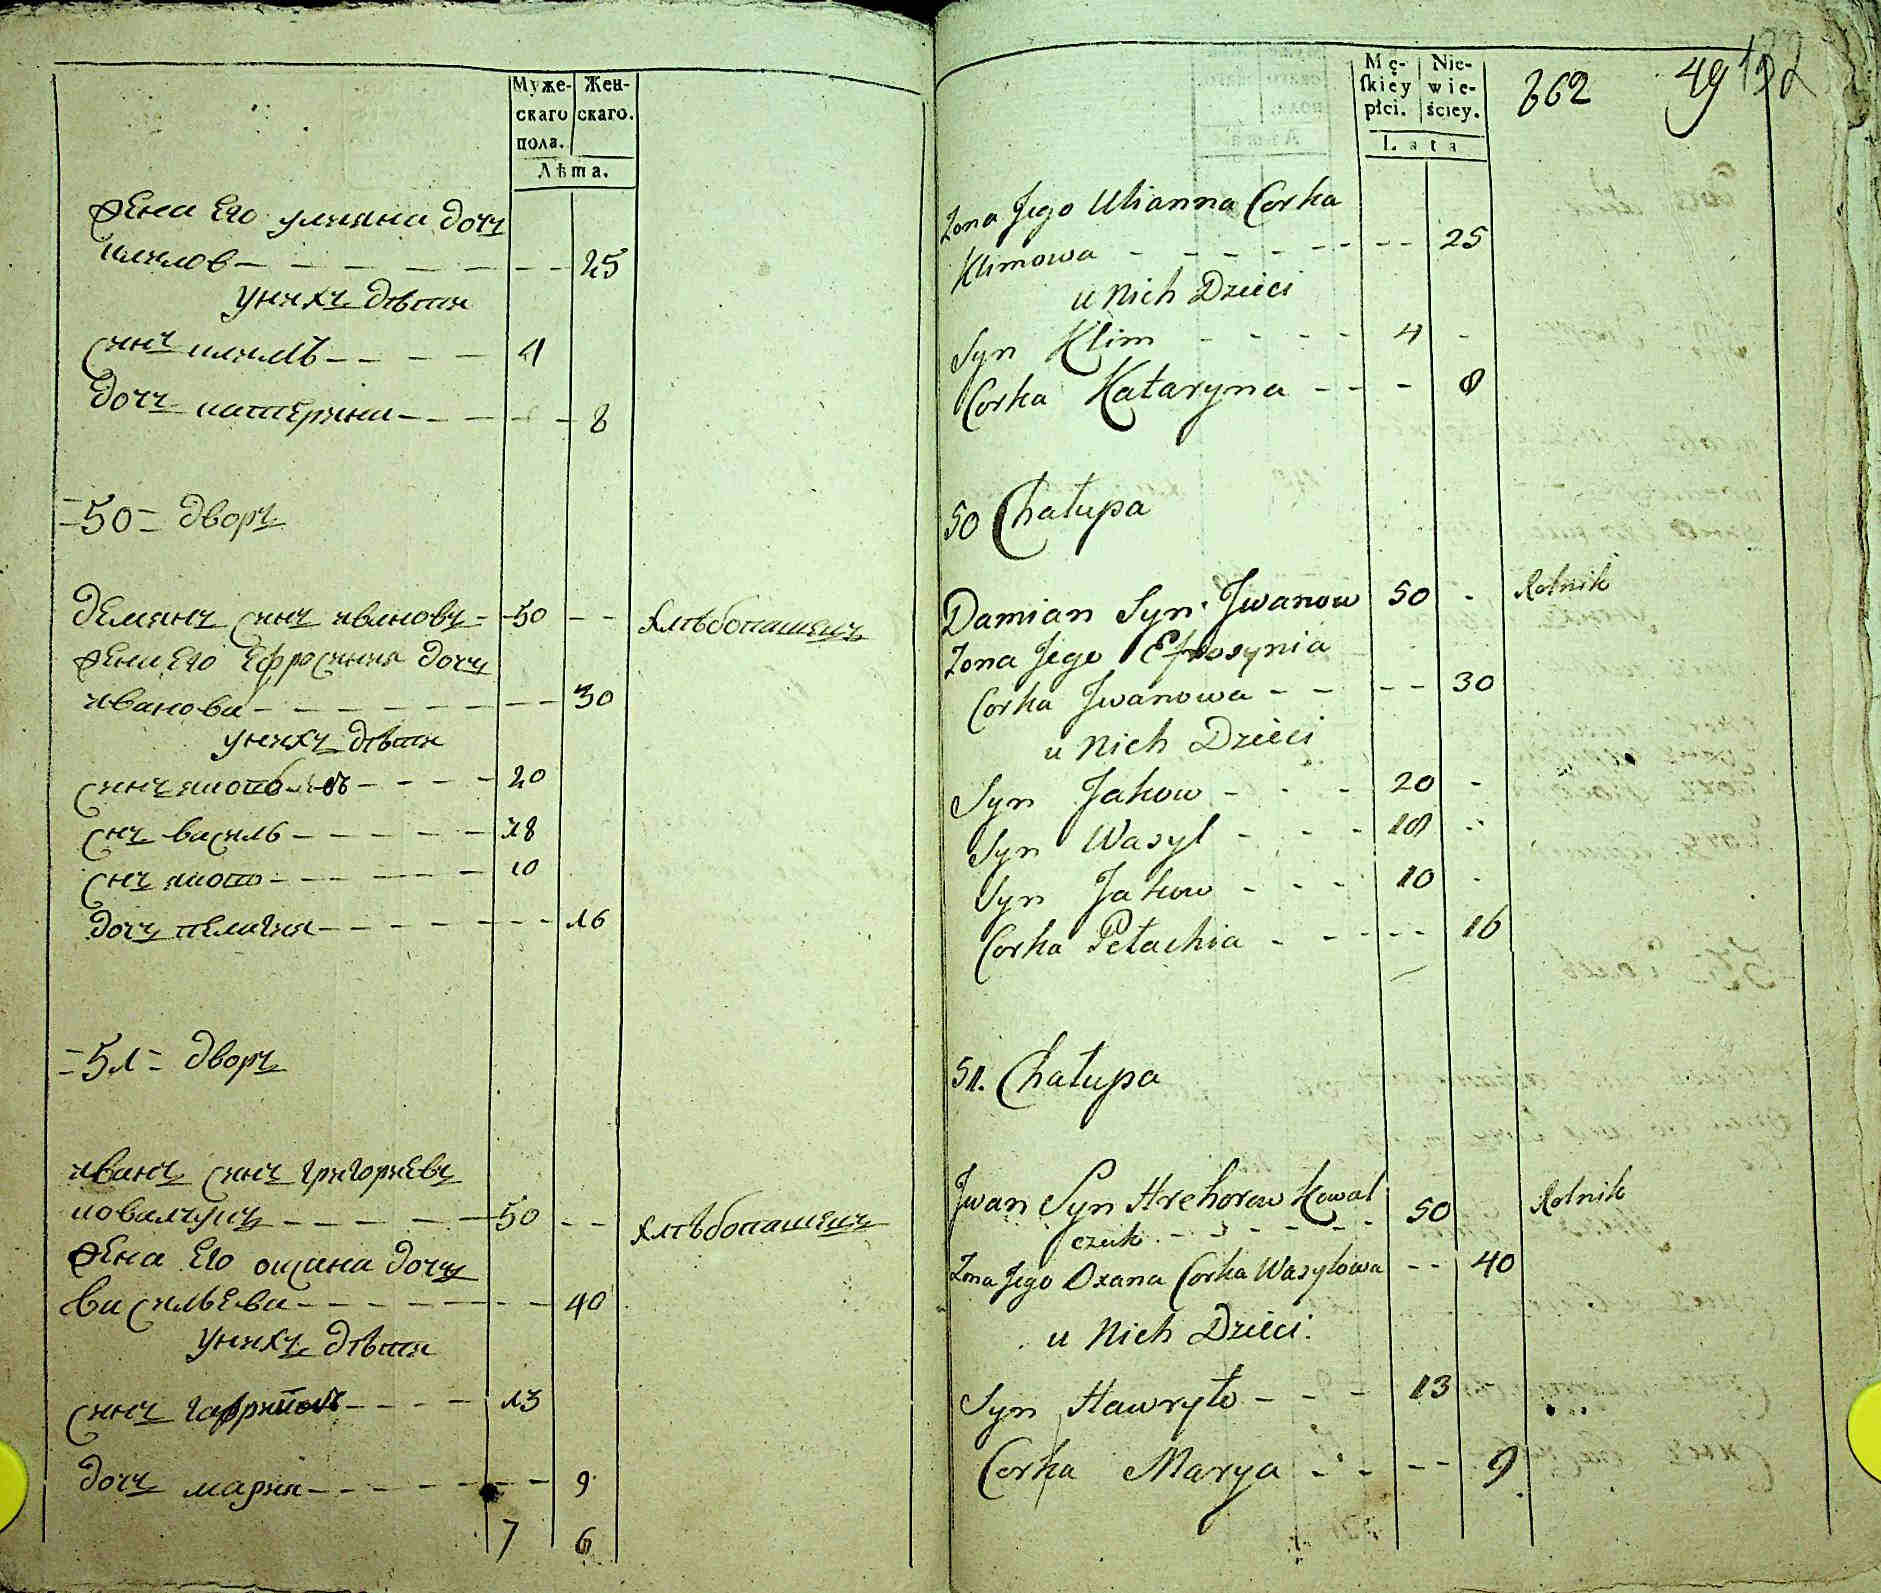 Муже-
скаго
пола.
Жен-
скаго.
Лѣта.
Жена Его улияна дочъ
климов - - - - - - - 25
унихъ дѣти
синъ климъ - - - - 4
дочъ катерина - - - - - 8
=50= дворъ
демянъ синъ ивановъ - 50 - - хлѣбопашецъ
Жена Его Ефросиния дочъ
иванова - - - - - - - 30
унихъ дѣти
синъ яковъ - - - - 20
снъ василь - - - - - 18
снъ яковъ - - - - - 10
дочъ пелагия - - - - - - 16
=51= дворъ
иванъ синъ григориевъ
ковалчукъ - - - - - 50 - - хлѣбопашецъ
Жена Его оксана дочъ
васильева - - - - - - - 40
унихъ дѣти
синъ гаврило - - - - 13
дочъ мария - - - - - - 9
7 6
Mę-
ſkiey
płci.
Nie-
wie-
ściey.
Lata
362 49 132
Zona Jego Ulianna Corka
Klimowa - - - - - - - - 25
u Nich Dzieci
Syn Klim - - - - 4 -
Corka Kataryna - - - 8
50 Chałupa
Damian Syn Jwanow 50 - Rolnik
Zona Jego Efrosynia
Corka Jwanowa - - - - 30
u Nich Dzieci
Syn Jakow - - - - 20 -
Syn Wasyl - - - 18 -
Syn Jakow - - - 10 -
Corka Pełachia - - - - - 16
51. Chałupa
Jwan Syn Hrehorow Kowal
czuk - - - - - 50 Rolnik
Zona Jego Oxana Corka Wasylowa - - 40
u Nich Dzieci.
Syn Hawryło - - - 13
Corka Marya - - - - 9